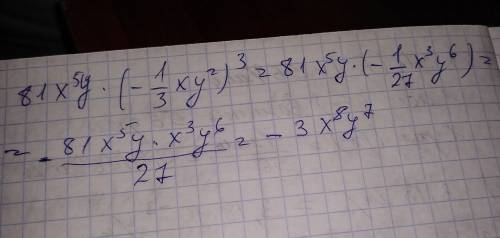 81x⁵y · (-1/3 xy²)³ = 81x⁵y · (-1/27 x³y⁶) =
= - 81x⁵y · x³y⁶ / 27 = - 3x⁸y⁷